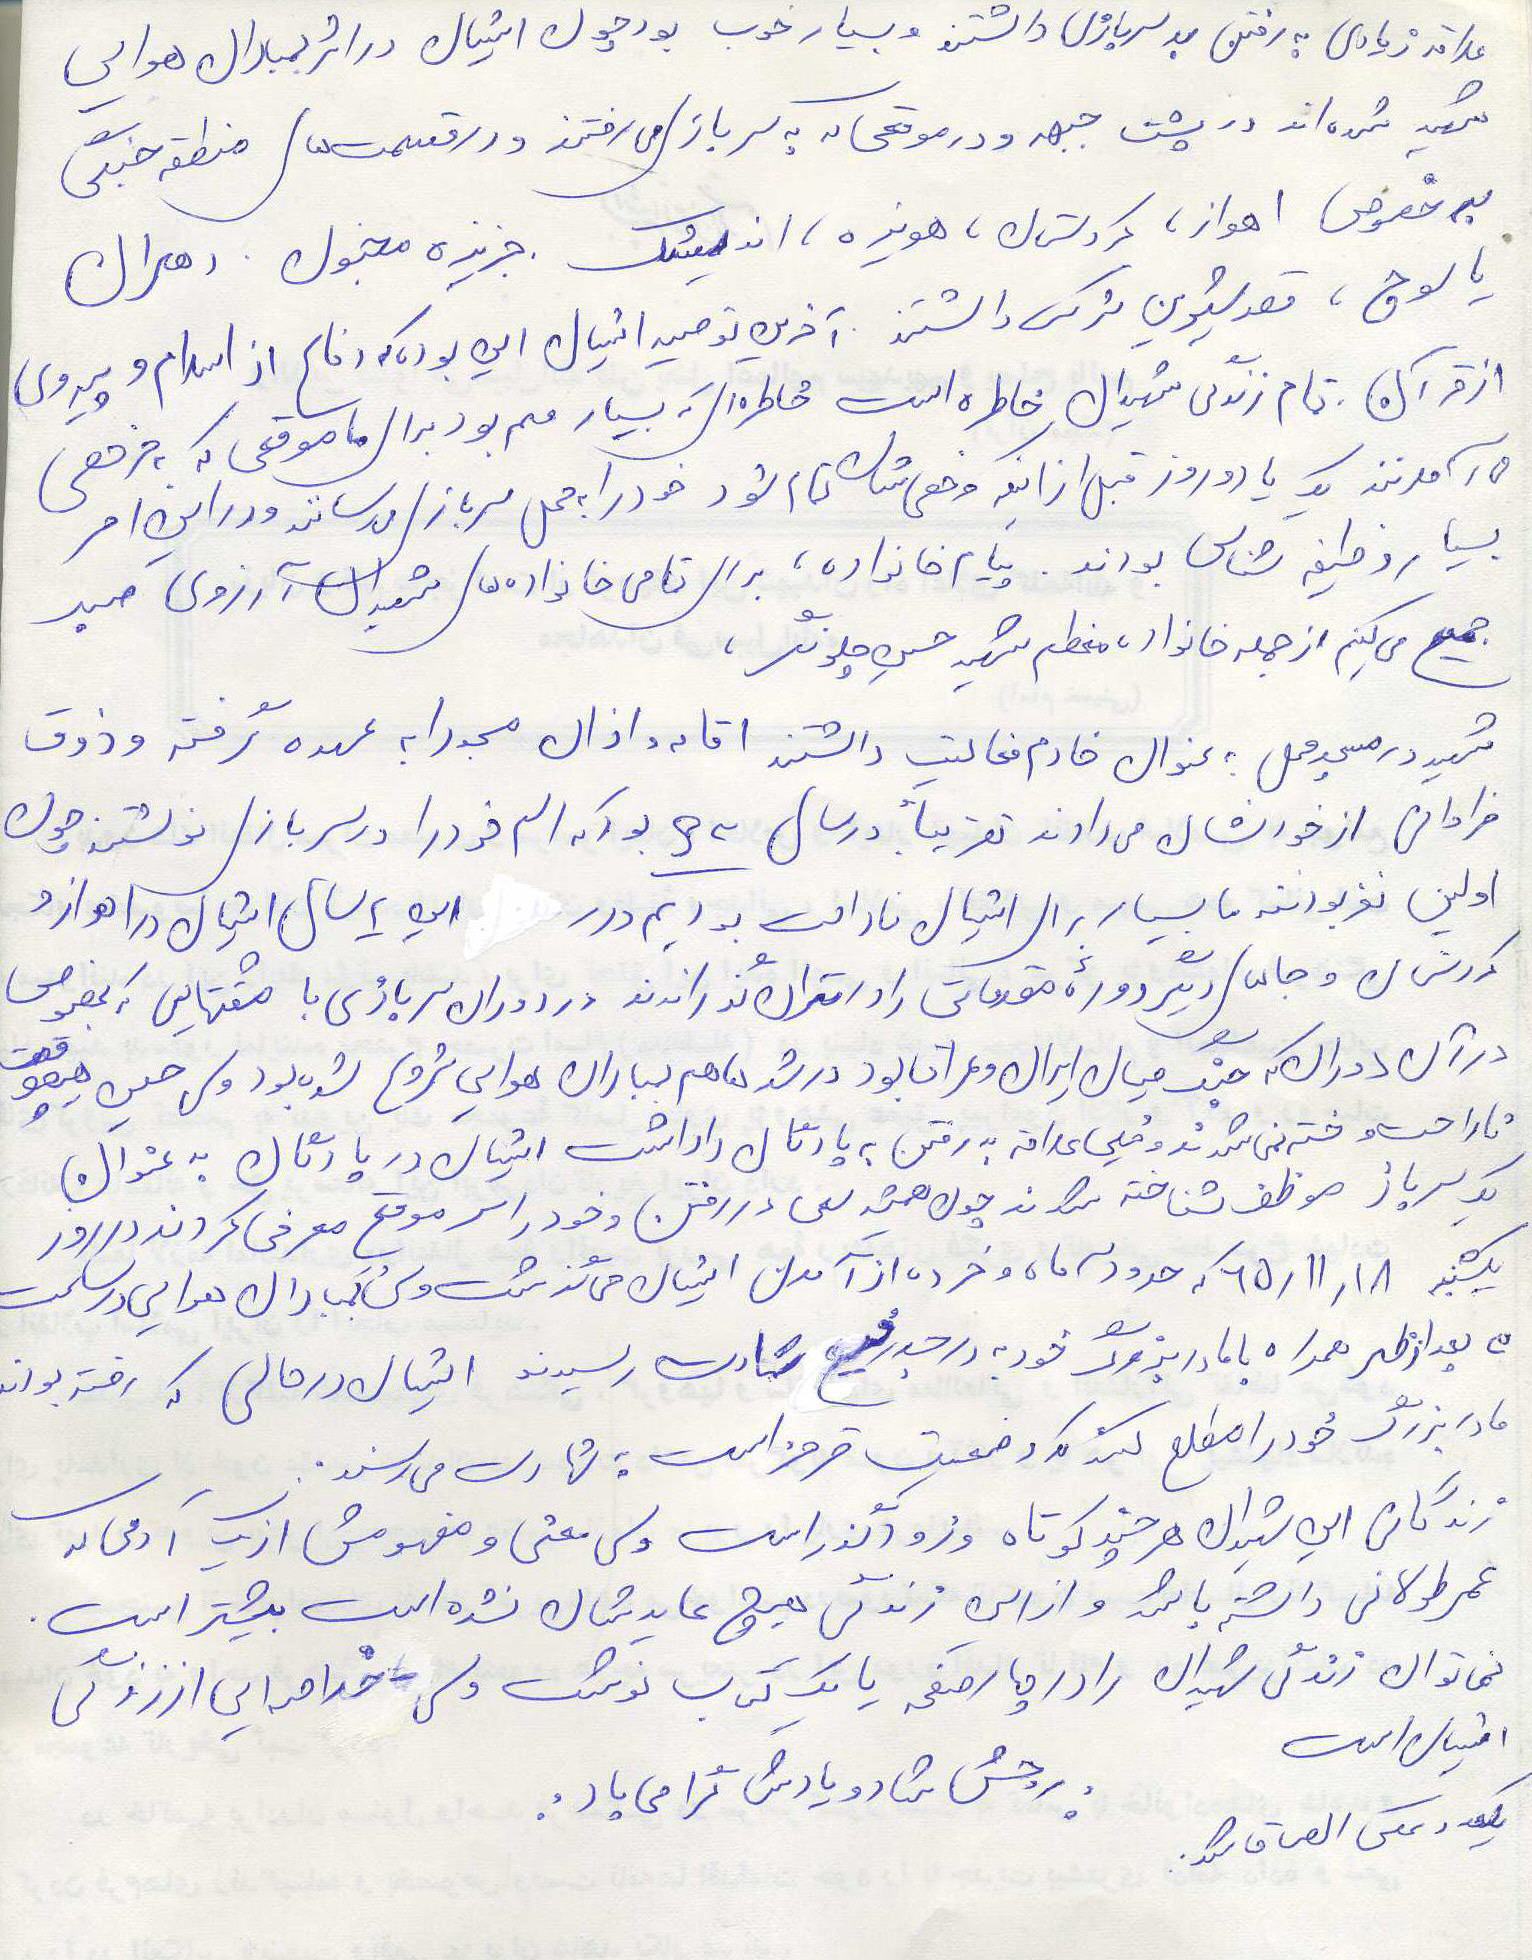 علاقه زیادی به رفتن به سربازی داشتند و بسیار خوب بود چون ایشان در اثر بمباران هوایی
شهید شده‌اند در پشت جبهه و در موقعی که به سربازی می‌رفتند و در قسمت‌های منطقه جنگی
به خصوص اهواز، کردستان، هویزه، اندیمشک، جزیزه مجنون. دهلران
یا سوج، قصر شیرین شرکت داشتند. آخرین توصیه ایشان این بود که دفاع از اسلام و پیروی
از قرآن. تمام زندگی شهیدان خاطره است خاطره‌ای که بسیار مهم بود برای ما موقعی که به مرخصی
می‌آمدند یک یا دو روز قبل از اینکه مرخصی‌شان تمام شود خود را به محل سربازی می‌رساند و در این امر
بسیار وظیفه شناس بودند. پیام خانواده، برای تمامی خانواده‌های شهیدان آرزوی صبر
جمیع می‌کنیم از جمله خانواده معظم شهید حسین چلونگر،
شهید در مسجد محل به عنوان خادم فعالیت داشتند اقامه و اذان مسجد را به عهده گرفته و ذوق
فراوانی از خود نشان می‌دادند تقریباً در سال بود که اسم خود را در سربازی نوشتند چون
اولین نفر بودند ما بسیار برای ایشان ناراحت بودیم و در این ۲ سال ایشان در اهواز و
کردستان و جاهای دیگر دورهٔ مقدماتی را در تهران گذراندند در دوران سربازی با مشقتهایی که بخصوص
در آن دوران که جنگ میان ایران و عراق بود در شهرها هم بمباران هوایی شروع شده بود ولی حسین هیچوقت
ناراحت و خسته نمی‌شدند و خیلی علاقه به رفتن به پادگان را داشت ایشان در پادگان به عنوان
یک سرباز موظف شناخته شدند چون همیشه سعی در رفتن و خود را سر موقع معرفی کردند در روز
یکشنبه ۶۵/۱۱/۱۸ که حدود سه ماه و خرده از آمدن ایشان می‌گذشت ولی بمباران هوایی در ساعت
بعد از ظهر همراه با مادر بزرگ خود به درجه رفیع شهادت رسیدند ایشان در حالی که رفته بودند
مادر بزرگ خود را مطلع کنند که وضعیت قرمز است به شهادت می‌رسند.
زندگانی این شهیدان هر چند کوتاه و زودگذر است ولی معنی و مفهومش از یک آدمی که
عمر طولانی داشته باشد و از این زندگی هیچ عایدشان نشده است بیشتر است.
نمی‌توان زندگی شهیدان را در چهار صفحه یا یک کتاب نوشت ولی خلاصه‌ایی از زندگی
ایشان است
روحش شاد و یادش گرامی باد
یکعدد عکس الصاق شد.